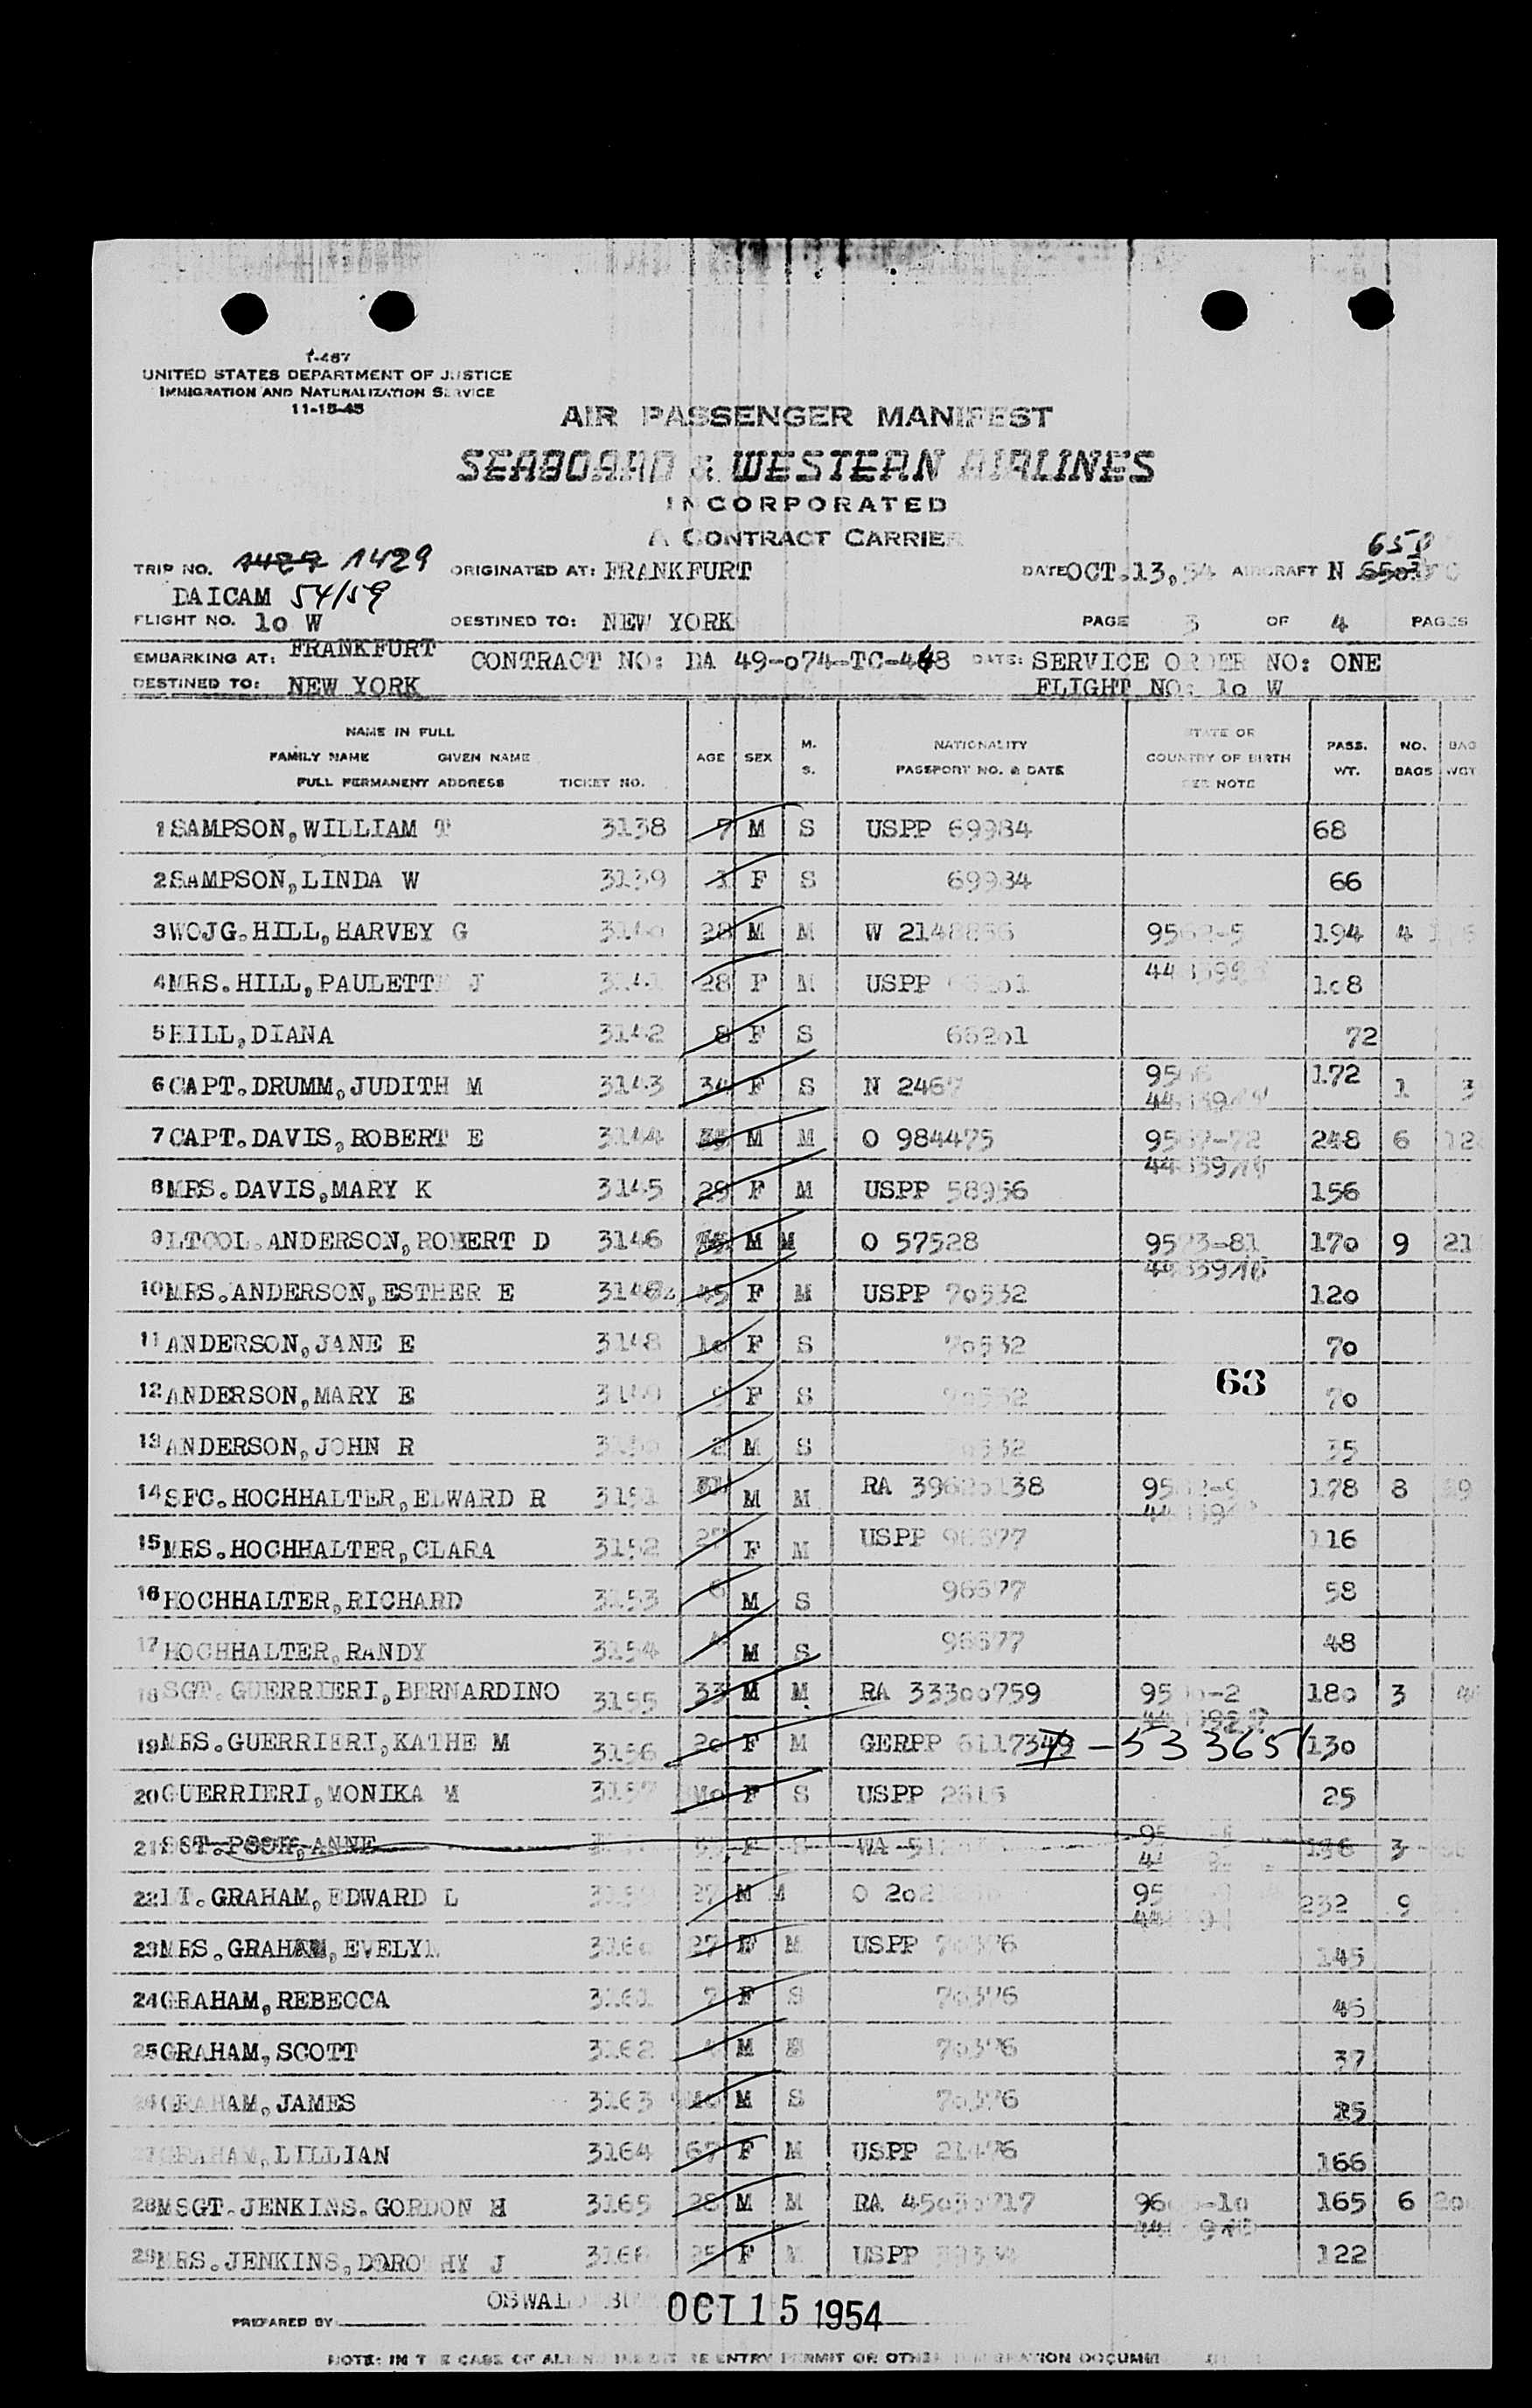 I-467
UNITED STATES DEPARTMENT OF JUSTICE
IMMIGRATION AND NATURALIZATION SERVICE
11-15-45
AIR PASSENGER MANIFEST
SEABOARD & WESTERN AIRLINES
INCORPORATED
A CONTRACT CARRIER
TRIP NO. 1427 1429 ORIGINATED AT: FRANKFURT DATE OCT.13,54 AIRCRAFT N 6503 650
DAICAM 54/59
FLIGHT NO. 10 W DESTINED TO: NEW YORK PAGE 3 OF 4 PAGES
EMBARKING AT: FRANKFURT CONTRACT NO: DA 49-074-TC-448 DATE: SERVICE ORDER NO: ONE
DESTINED TO: NEW YORK FLIGHT NO: 10 W
NAME IN FULL
FAMILY NAME GIVEN NAME
FULL PERMANENT ADDRESS TICKET NO. AGE SEX M. S. NATIONALITY PASSPORT NO. & DATE STATE OR COUNTRY OF BIRTH SEE NOTE PASS. WT. NO. BAGS BAG WGT
1 SAMPSON,WILLIAM T 3138 7 M S USPP 69984 68
2 SAMPSON,LINDA W 3139 1 F S 69984 66
3 WOJG.HILL,HARVEY G 3140 28 M M W 2148856 194 4
4 MRS.HILL,PAULETTE J 3141 28 F M USPP 108
5 HILL,DIANA 3142 8 F S 66201 72
6 CAPT.DRUMM,JUDITH M 3143 34 F S N 2467 172 1 3
7 CAPT.DAVIS,ROBERT E 3144 35 M M O 984475 248 6 12
8 MRS.DAVIS,MARY K 3145 29 F M USPP 58956 156
9 LTCOL.ANDERSON,ROBERT D 3146 M M O 57528 170 9 21
10 MRS.ANDERSON,ESTHER E 3147 45 F M USPP 70532 120
11 ANDERSON,JANE E 3148 10 F S 70532 70
63
12 ANDERSON,MARY E 3149 9 F S 70532 70
13 ANDERSON,JOHN R 3150 2 M S 70532 35
14 SFC.HOCHHALTER,EDWARD R 3151 31 M M RA 178 8
15 MRS.HOCHHALTER,CLARA 3152 27 F M USPP 96677 116
16 HOCHHALTER,RICHARD 3153 6 M S 96677 58
17 HOCHHALTER,RANDY 3154 4 M S 96677 48
18 SGT.GUERRIERI,BERNARDINO 3155 33 M M RA 33300759 180 3
19 MRS.GUERRIERI,KATHE M 3156 20 F M GERPP 6117349 - 533651 130
20 GUERRIERI,MONIKA M 3157 Mo F S USPP 25
21 SGT.POOR,ANNE F S WA 136 3
22 LT.GRAHAM,EDWARD L 3159 27 M M O 232 9
23 MRS.GRAHAM,EVELYN 3160 27 F M USPP 70376 145
24 GRAHAM,REBECCA 3161 7 F S 70376 46
25 GRAHAM,SCOTT 3162 4 M 70376 37
26 GRAHAM,JAMES 3163 M S 70376 25
27 GRAHAM,LILLIAN 3164 67 F M USPP 21476 166
28 MSGT.JENKINS.GORDON H 3165 28 M M RA 165 6
29 MRS.JENKINS,DOROTHY J 3166 25 F M USPP 122
PREPARED BY: OSWALD OCT 15 1954
NOTE: IN THE CASE OF ALIENS RE ENTRY PERMIT OR OTHER IMMIGRATION DOCUMENT